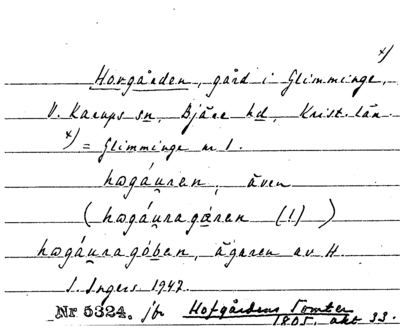 x)
Hovgården, gård i Glimminge,
V. Karups sn, Bjäre hd, Krist. län.
x) = Glimminge nr 1.
hωgáu̯ren, även
(hωgáu̯ragáren (!))
hωgáu̯ragóben, ägaren av H.
I. Ingers 1947.
Nr 5324. jfr Hofgårdens Tomter
1805 akt 33.